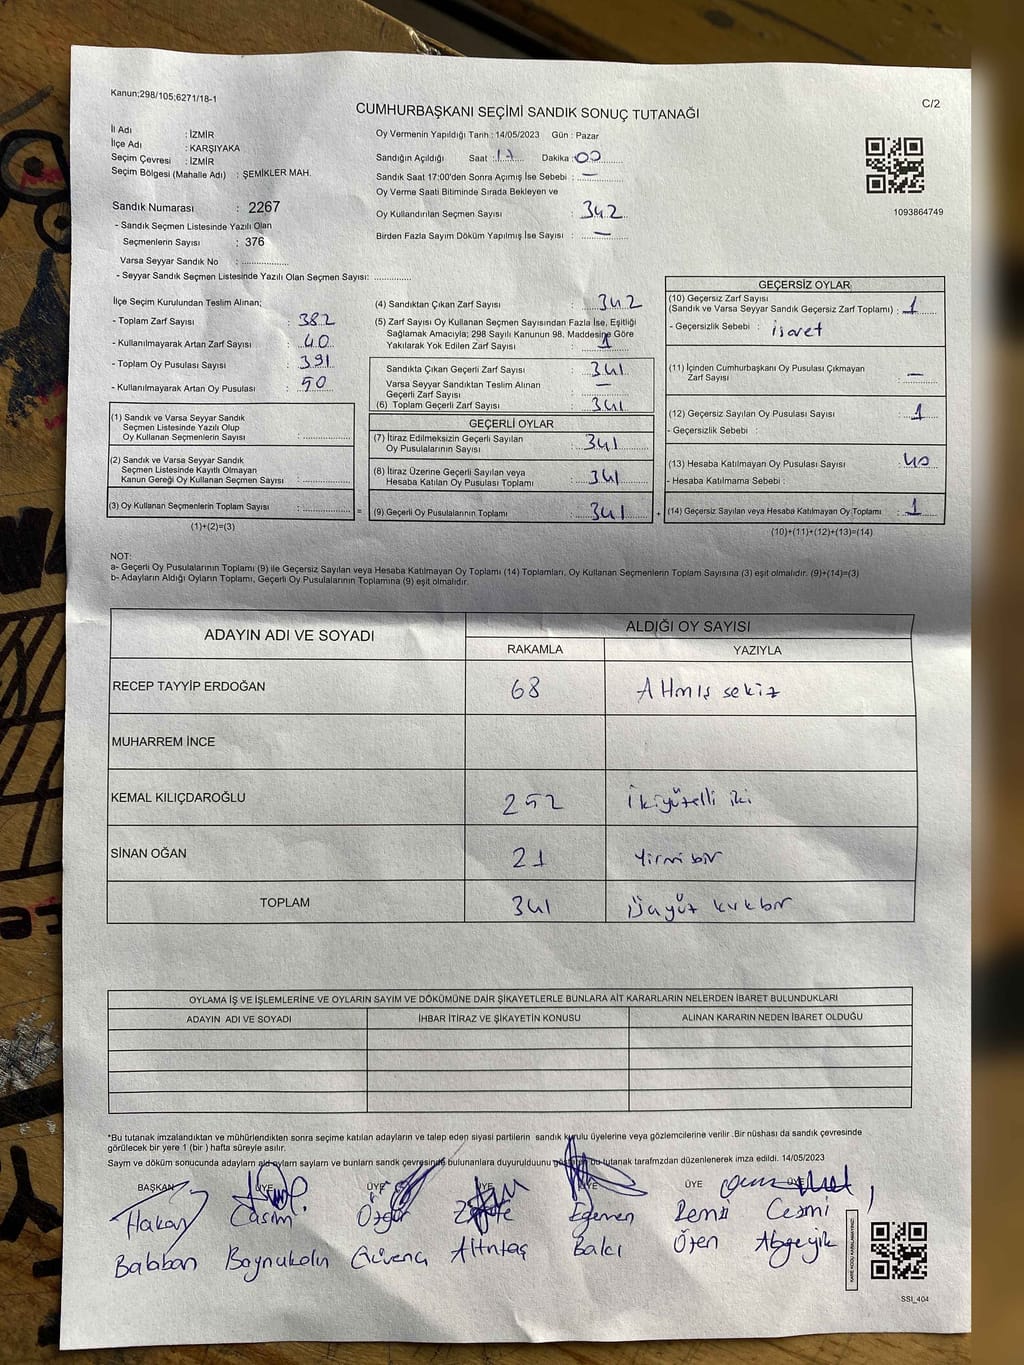 Kanun;298/105;6271/18-1
C/2
CUMHURBAŞKANI SEÇİMİ SANDIK SONUÇ TUTANAĞI
İl Adı : İZMİR
İlçe Adı : KARŞIYAKA
Seçim Çevresi : İZMİR
Seçim Bölgesi (Mahalle Adı) : ŞEMİKLER MAH.
Sandık Numarası : 2267
- Sandık Seçmen Listesinde Yazılı Olan
Seçmenlerin Sayısı : 376
Varsa Seyyar Sandık No : ....................
- Seyyar Sandık Seçmen Listesinde Yazılı Olan Seçmen Sayısı: ..............
Oy Vermenin Yapıldığı Tarih : 14/05/2023 Gün : Pazar
Sandığın Açıldığı Saat : 17 Dakika : 00
Sandık Saat 17:00'den Sonra Açımış İse Sebebi : —
Oy Verme Saati Bitiminde Sırada Bekleyen ve
Oy Kullandırılan Seçmen Sayısı : 342
Birden Fazla Sayım Döküm Yapılmış İse Sayısı : —
1093864749
İlçe Seçim Kurulundan Teslim Alınan;
- Toplam Zarf Sayısı : 382
- Kullanılmayarak Artan Zarf Sayısı : 40
- Toplam Oy Pusulası Sayısı : 391
- Kullanılmayarak Artan Oy Pusulası : 50
(1) Sandık ve Varsa Seyyar Sandık
Seçmen Listesinde Yazılı Olup
Oy Kullanan Seçmenlerin Sayısı : ................
(2) Sandık ve Varsa Seyyar Sandık
Seçmen Listesinde Kayıtlı Olmayan
Kanun Gereği Oy Kullanan Seçmen Sayısı : ................
(3) Oy Kullanan Seçmenlerin Toplam Sayısı : ................ =
(1)+(2)=(3)
(4) Sandıktan Çıkan Zarf Sayısı : 342
(5) Zarf Sayısı Oy Kullanan Seçmen Sayısından Fazla İse, Eşitliği
Sağlamak Amacıyla; 298 Sayılı Kanunun 98. Maddesine Göre
Yakılarak Yok Edilen Zarf Sayısı : 1
Sandıkta Çıkan Geçerli Zarf Sayısı : 341
Varsa Seyyar Sandıktan Teslim Alınan
Geçerli Zarf Sayısı : —
(6) Toplam Geçerli Zarf Sayısı : 341
GEÇERLİ OYLAR
(7) İtiraz Edilmeksizin Geçerli Sayılan
Oy Pusulalarının Sayısı : 341
(8) İtiraz Üzerine Geçerli Sayılan veya
Hesaba Katılan Oy Pusulası Toplamı : 341
(9) Geçerli Oy Pusulalarının Toplamı : 341 +
GEÇERSİZ OYLAR
(10) Geçersiz Zarf Sayısı
(Sandık ve Varsa Seyyar Sandık Geçersiz Zarf Toplamı) : 1
- Geçersizlik Sebebi : işaret
(11) İçinden Cumhurbaşkanı Oy Pusulası Çıkmayan
Zarf Sayısı : —
(12) Geçersiz Sayılan Oy Pusulası Sayısı : 1
- Geçersizlik Sebebi :
(13) Hesaba Katılmayan Oy Pusulası Sayısı : 40
- Hesaba Katılmama Sebebi :
(14) Geçersiz Sayılan veya Hesaba Katılmayan Oy Toplamı : 1
(10)+(11)+(12)+(13)=(14)
NOT:
a- Geçerli Oy Pusulalarının Toplamı (9) ile Geçersiz Sayılan veya Hesaba Katılmayan Oy Toplamı (14) Toplamları, Oy Kullanan Seçmenlerin Toplam Sayısına (3) eşit olmalıdır. (9)+(14)=(3)
b- Adayların Aldığı Oyların Toplamı, Geçerli Oy Pusulalarının Toplamına (9) eşit olmalıdır.
ADAYIN ADI VE SOYADI
ALDIĞI OY SAYISI
RAKAMLA YAZIYLA
RECEP TAYYİP ERDOĞAN 68 Altmış sekiz
MUHARREM İNCE
KEMAL KILIÇDAROĞLU 252 İkiyüzelli iki
SİNAN OĞAN 21 Yirmi bir
TOPLAM 341 Üçyüz kırkbir
OYLAMA İŞ VE İŞLEMLERİNE VE OYLARIN SAYIM VE DÖKÜMÜNE DAİR ŞİKAYETLERLE BUNLARA AİT KARARLARIN NELERDEN İBARET BULUNDUKLARI
ADAYIN ADI VE SOYADI İHBAR İTİRAZ VE ŞİKAYETİN KONUSU ALINAN KARARIN NEDEN İBARET OLDUĞU
*Bu tutanak imzalandıktan ve mühürlendikten sonra seçime katılan adayların ve talep eden siyasi partilerin sandık kurulu üyelerine veya gözlemcilerine verilir .Bir nüshası da sandık çevresinde
görülecek bir yere 1 (bir ) hafta süreyle asılır.
Sayım ve döküm sonucunda adayların sandık çevresinde bulunanlara bu tutanak tarafımızdan düzenlenerek imza edildi. 14/05/2023
BAŞKAN ÜYE ÜYE ÜYE ÜYE
Hakan Casim Özgür Egemen Remzi Cezmi
Babban Boynukalın Güvenç Altıntaş Balcı Ören
SSI_404